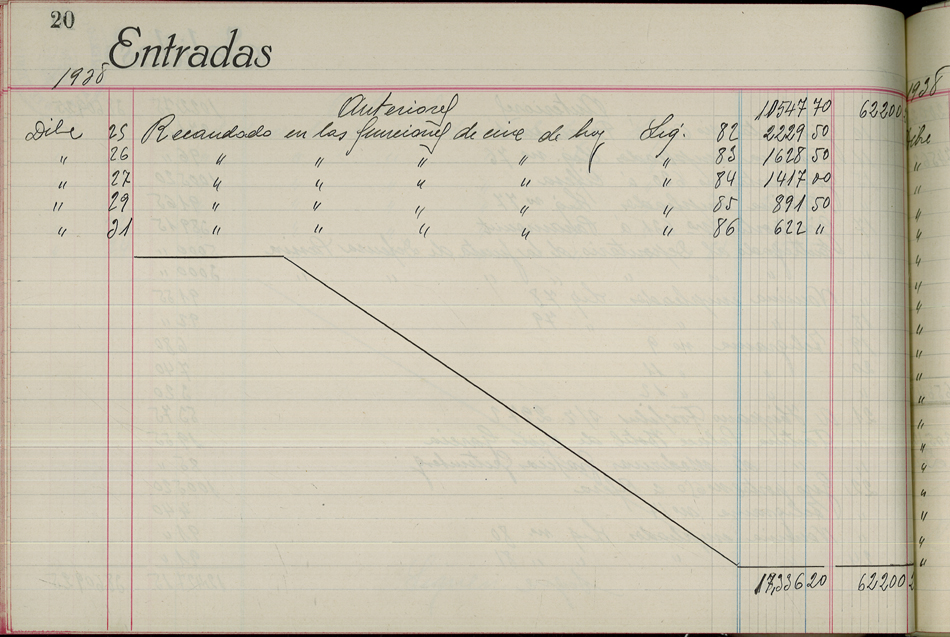 20
Entradas
1938
Anteriores 10547 70 62200
Dbre 25 Recaudado en las funciones de cine de hoy Liq. 82 2229 50
" 26 " " " " " 83 1628 50
" 27 " " " " " 84 1417 00
" 29 " " " " " 85 891 50
" 31 " " " " " 86 622 "
17,336 20 62200
1938